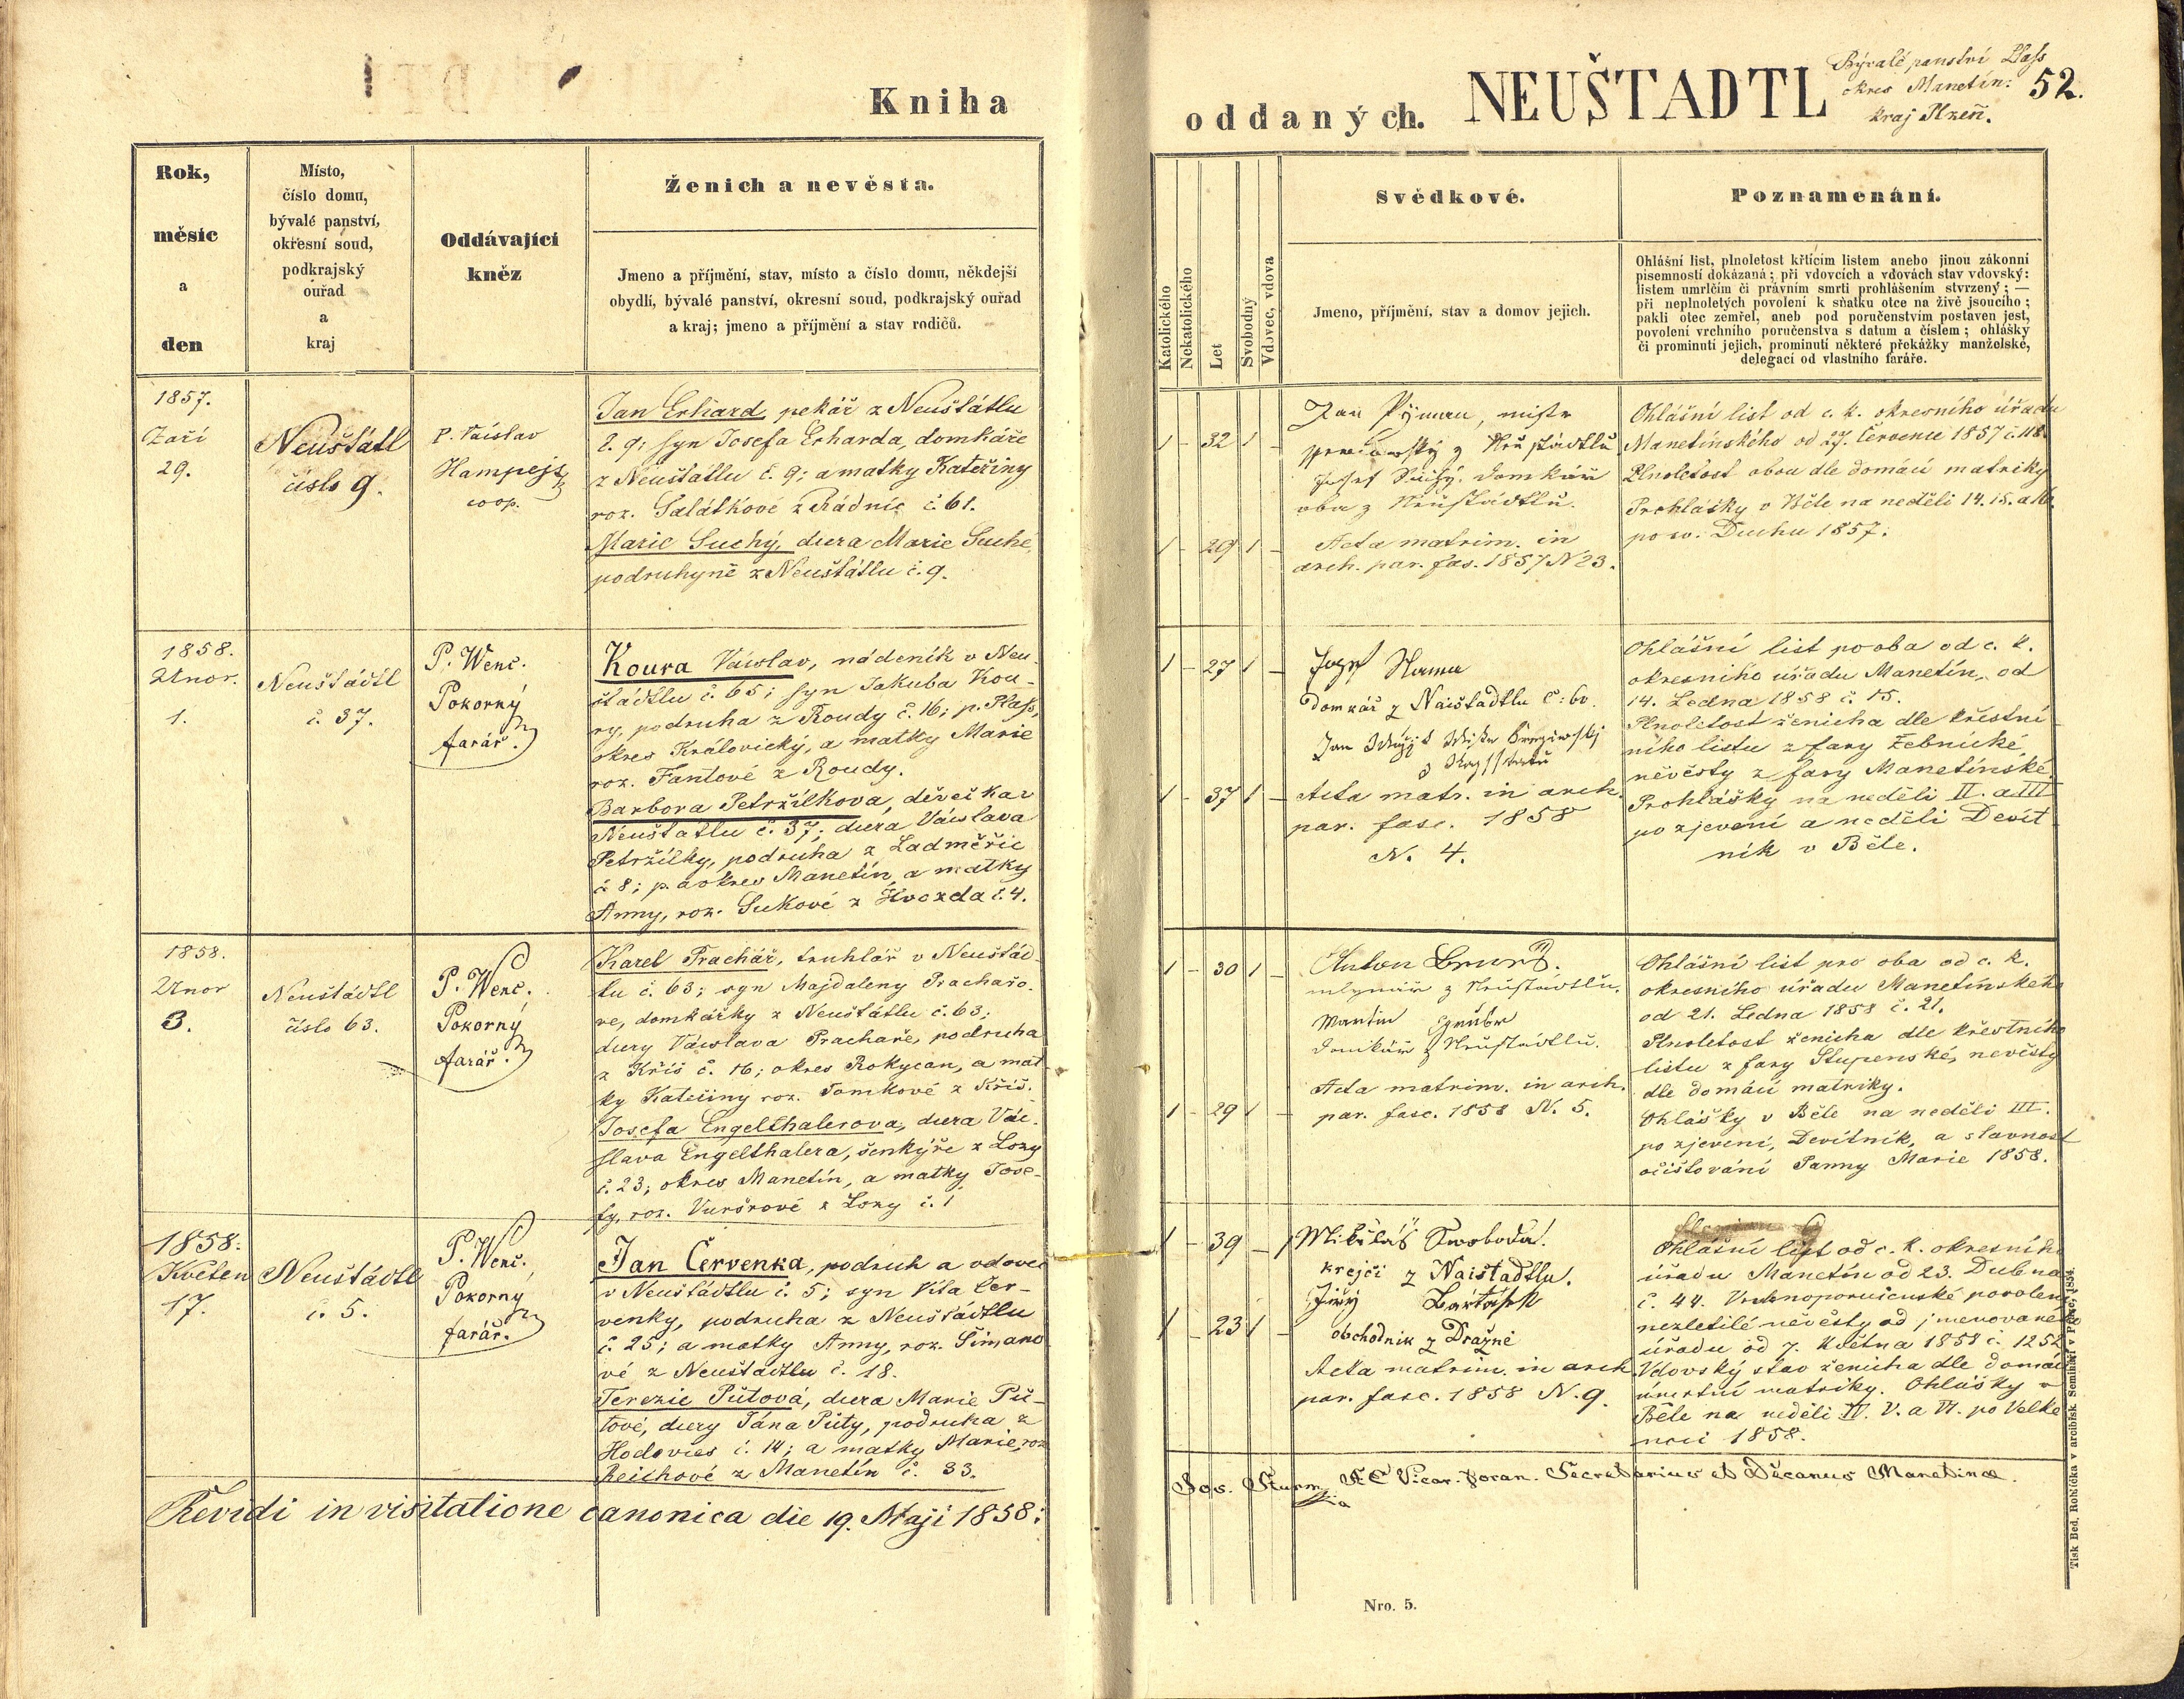 Kniha
oddaných. NEUŠTADTL
Bývalé panství Plass
okres Manetín:
kraj Plzeň.
52.
Rok,
měsíc
a
den
Místo,
číslo domu,
bývalé panství,
okresní soud,
podkrajský
ouřad
a
kraj
Oddávající
kněz
Ženich a nevěsta.
Jmeno a příjmění, stav, místo a číslo domu, někdejší
obydlí, bývalé panství, okresní soud, podkrajský ouřad
a kraj; jmeno a příjmění a stav rodičů.
Katolického
Nekatolického
Let
Svobodný
Vdovec, vdova
Svědkové.
Jmeno, příjmění, stav a domov jejich.
Poznamenání.
Ohlášní list, plnoletost křtícím listem anebo jinou zákonní
písemností dokázaná; při vdovcích a vdovách stav vdovský:
listem umrlčím či právním smrti prohlášením stvrzený; —
při neplnoletých povolení k sňatku otce na živě jsoucího;
pakli otec zemřel, aneb pod poručenstvím postaven jest,
povolení vrchního poručenstva s datum a číslem; ohlášky
či prominutí jejich, prominutí některé překážky manželské,
delegací od vlastního faráře.
1857.
Září
29.
Neuštátl
číslo 9.
P. Václav
Hampejz
coop.
Jan Erhard, pekář z Neuštátlu
č. 9; syn Josefa Erharda, domkáře
z Neuštátlu č. 9; a matky Kateřiny
roz. Salátkové z Rádnic č. 61.
Marie Suchý, dcera Marie Suché,
podruhyně z Neuštátlu č. 9.
1 - 32 1 -
1 - 29 1 -
Jan Pýman, mistr
oba z Neustádtlu.
Acta matrim. in
arch. par. fas. 1857 N 23.
Ohlášní list od c. k. okresního úřadu
Manetínského od 27. Července 1857 č. 118.
Plnoletost obou dle domácí matriky
Prohlášky v Běle na neděli 14. 15. a 16.
po sv. Duchu 1857.
1858.
Unor.
1.
Neuštádtl
č. 37.
P. Wenc.
Pokorný
farář.
Koura Václav, nádeník v Neu-
štádtlu č. 65; syn Jakuba Kou-
ry, podruha z Roudy č. 16; p. Plass,
okres Královický, a matky Marie
roz. Fantové z Roudy.
Barbora Petržílková, děvečka v
Neuštatlu č. 37; dcera Václava
Petržílky, podruha z Ladměřic
č 8; p. a okres Manetín, a matky
Anny, roz. Sukové z Hvozda č. 4.
1 - 27 1 -
1 - 37 1 -
Josef
Domkář z Naištadtlu č: 60.
Acta matr. in arch.
par. fasc. 1858
N. 4.
Ohlášní list pro oba od c. k.
okresního úřadu Manetín, od
14. Ledna 1858 č. 15.
Plnoletost ženicha dle křestní
ního listu z fary Žebnické,
něvěsty z fary Manetínské.
Prohlášky na neděli II. a III
po zjevení a neděli Devít
ník v Běle.
1858.
Unor
3.
Neuštádtl
číslo 63.
P. Wenc.
Pokorný
farář.
Karel Prachář, truhlář v Neuštád-
tlu č. 63; syn Majdaleny Prachařo-
ve, domkářky z Neuštátlu č. 63;
dcery Václava Prachaře, podruha
z Kříš č. 16; okres Rokycan, a mat
ky Kateřiny roz. Tomkové z Kříš.
Josefa Engelthalerova, dcera Vác-
slava Engelthalera, šenkýře z Lozy
č. 23; okres Manetín, a matky Jose-
fy, roz. Vuršrové z Lozy č. 1
1 - 30 1 -
1 - 29 1 -
Anton
mlynář z Neustádtlu.
Martin Gruber
domkář z Neustádtlu.
Acta matrim. in arch.
par. fasc. 1858 N. 5.
Ohlášní list pro oba od c. k.
okresního úřadu Manetínského
od 21. Ledna 1858 č. 21.
Plnoletost ženicha dle křestního
listu z fary Stupenské, nevěsty
dle domácí matriky.
Ohlášky v Běle na neděli III.
po zjevení, Devítník, a slavnost
očišťování Panny Marie 1858.
1858.
Květen
17.
Neuštádtl
č. 5.
P. Wenc.
Pokorný
farář.
Jan Červenka, podruh a vdovec
v Neuštádtlu č. 5; syn Víta Čer-
venky, podruha z Neuštádtlu
č. 25; a matky Anny, roz. Šimano
vé z Neuštadtlu č. 18.
Terezie Pútová, dcera Marie Pú-
tové, dcery Jána Púty, podruha z
Hodovics č. 14; a matky Marie, roz
Reichové z Manetín č. 33.
1 - 39 - 1
1 - 23 1 -
Mikuláš Swoboda.
krejčí z Naištadtlu.
Jiřý Bartášek
obchodník z Dražně
Acta matrim. in arch
par. fasc. 1858 N. 9.
Ohlášní list od c. k. okresního
úřadu Manetín od 23. Dubna
č. 44. Vrchnoporučenské povolení
nezletilé něvěsty od jmenovaného
úřadu od 7. Května 1858 č. 1252
Vdovský stav ženicha dle domácí
úmrtní matriky. Ohlášky v
Běle na neděli IV. V. a VI. po Velké
noci 1858.
Revidi in visitatione canonica die 19. Maji 1858:
Jos. Sturm Vicar. foran. Secretarius et Decanus Manetinae.
Nro. 5.
Tisk Bed. Rohlíčka v arcibisk. Semináři v Praze, 1854.